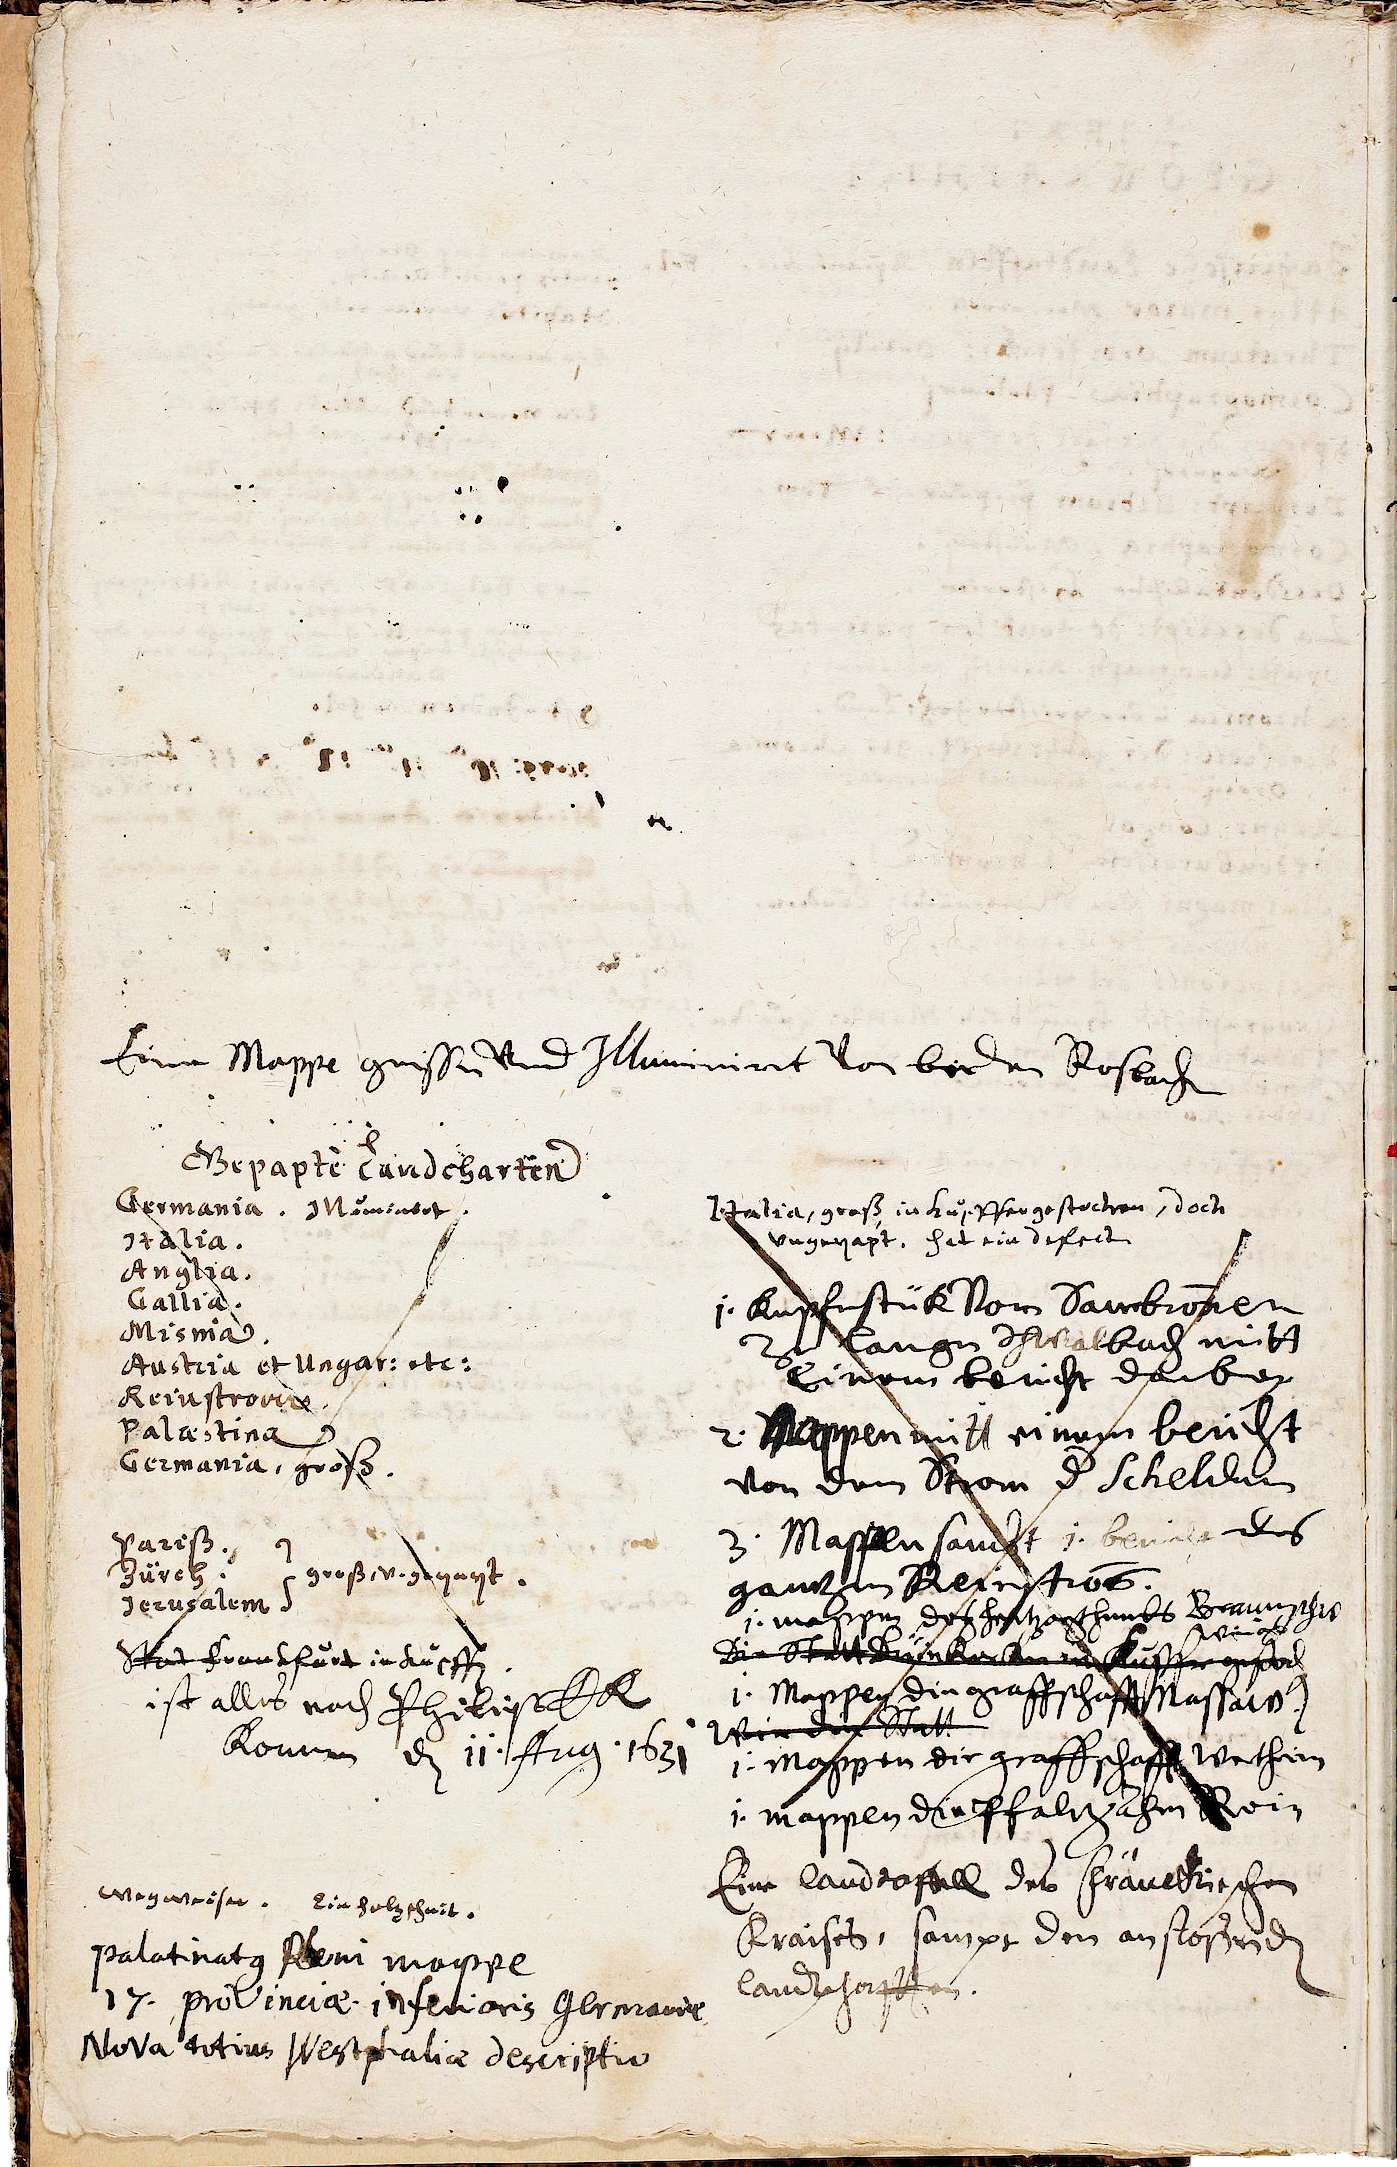 Eine Mappe grosse Vnd Illuminiret Von beiden Rosbach
Gepapte Landcharten
Germania. Illuminirt.
Italia.
Anglia.
Gallia.
Misnia.
Austria et Ungar: etc:
Reinstrom.
Palæstina
Germania, groß.
Pariß.
Zürch.
Jerusalem
groß, v.
Stat Franckfurt in Kupff.
ist alles nach Philipseck
Komen d 11. Aug. 1631
Wegweiser. Ein holzschnit.
Palatinatg Rheni mappe
17. proVinciæ inferioris Germaniæ
NoVa totius Westphaliæ descriptio
Italia, groß, in kupffer gestochen, doch
vngepapt. hat ein defect
1. Kupferstük Von Saurbronnen
Zu langen Schwalbach mitt
Einem bericht darber
2. Mappen mitt einem bericht
von dem Strom d Schelden
3. Mappen sambt 1. bericht des
gantzen Reinstroms.
1. mappen des hertzogthumbs Braunschw
Die Statt in Kupffer gestoch
1. Mappen die graffschafft Nassaw
die Statt
1. Mappen die graffschafft Wertheim
1. mappen die Pfaltz ahm Rein
Eine landtaffell des Fränckischen
Kraises, sampt den anstoßend
landschafften.